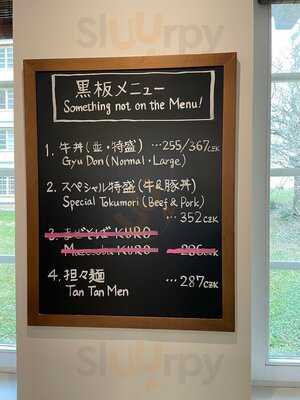 黒板メニュー
Something not on the Menu!
1. 牛丼(並・特盛) …255/367CZK
Gyu Don (Normal・Large)
2. スペシャル特盛(牛&豚丼)
Special Tokumori (Beef & Pork)
…352CZK
3. まぜそば KURO
Mazesoba KURO …236CZK
4. 担々麺 …287CZK
Tan Tan Men
Sluurpy
Sluurpy